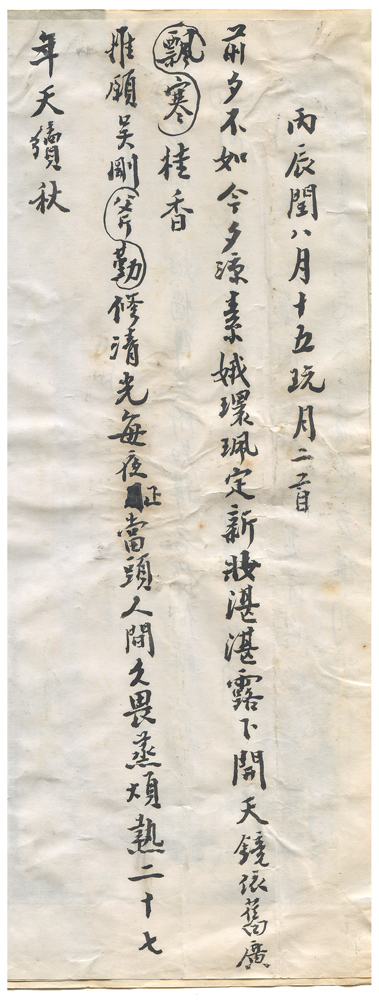 丙辰閏八月十五玩月二首
前夕不如今夕凉素娥環珮定新妝湛湛露下開天鏡依舊廣
飄寒桂香
惟願吳剛斧勤修清光每夜正當頭人間久畏蒸煩熱二十七
年天續秋